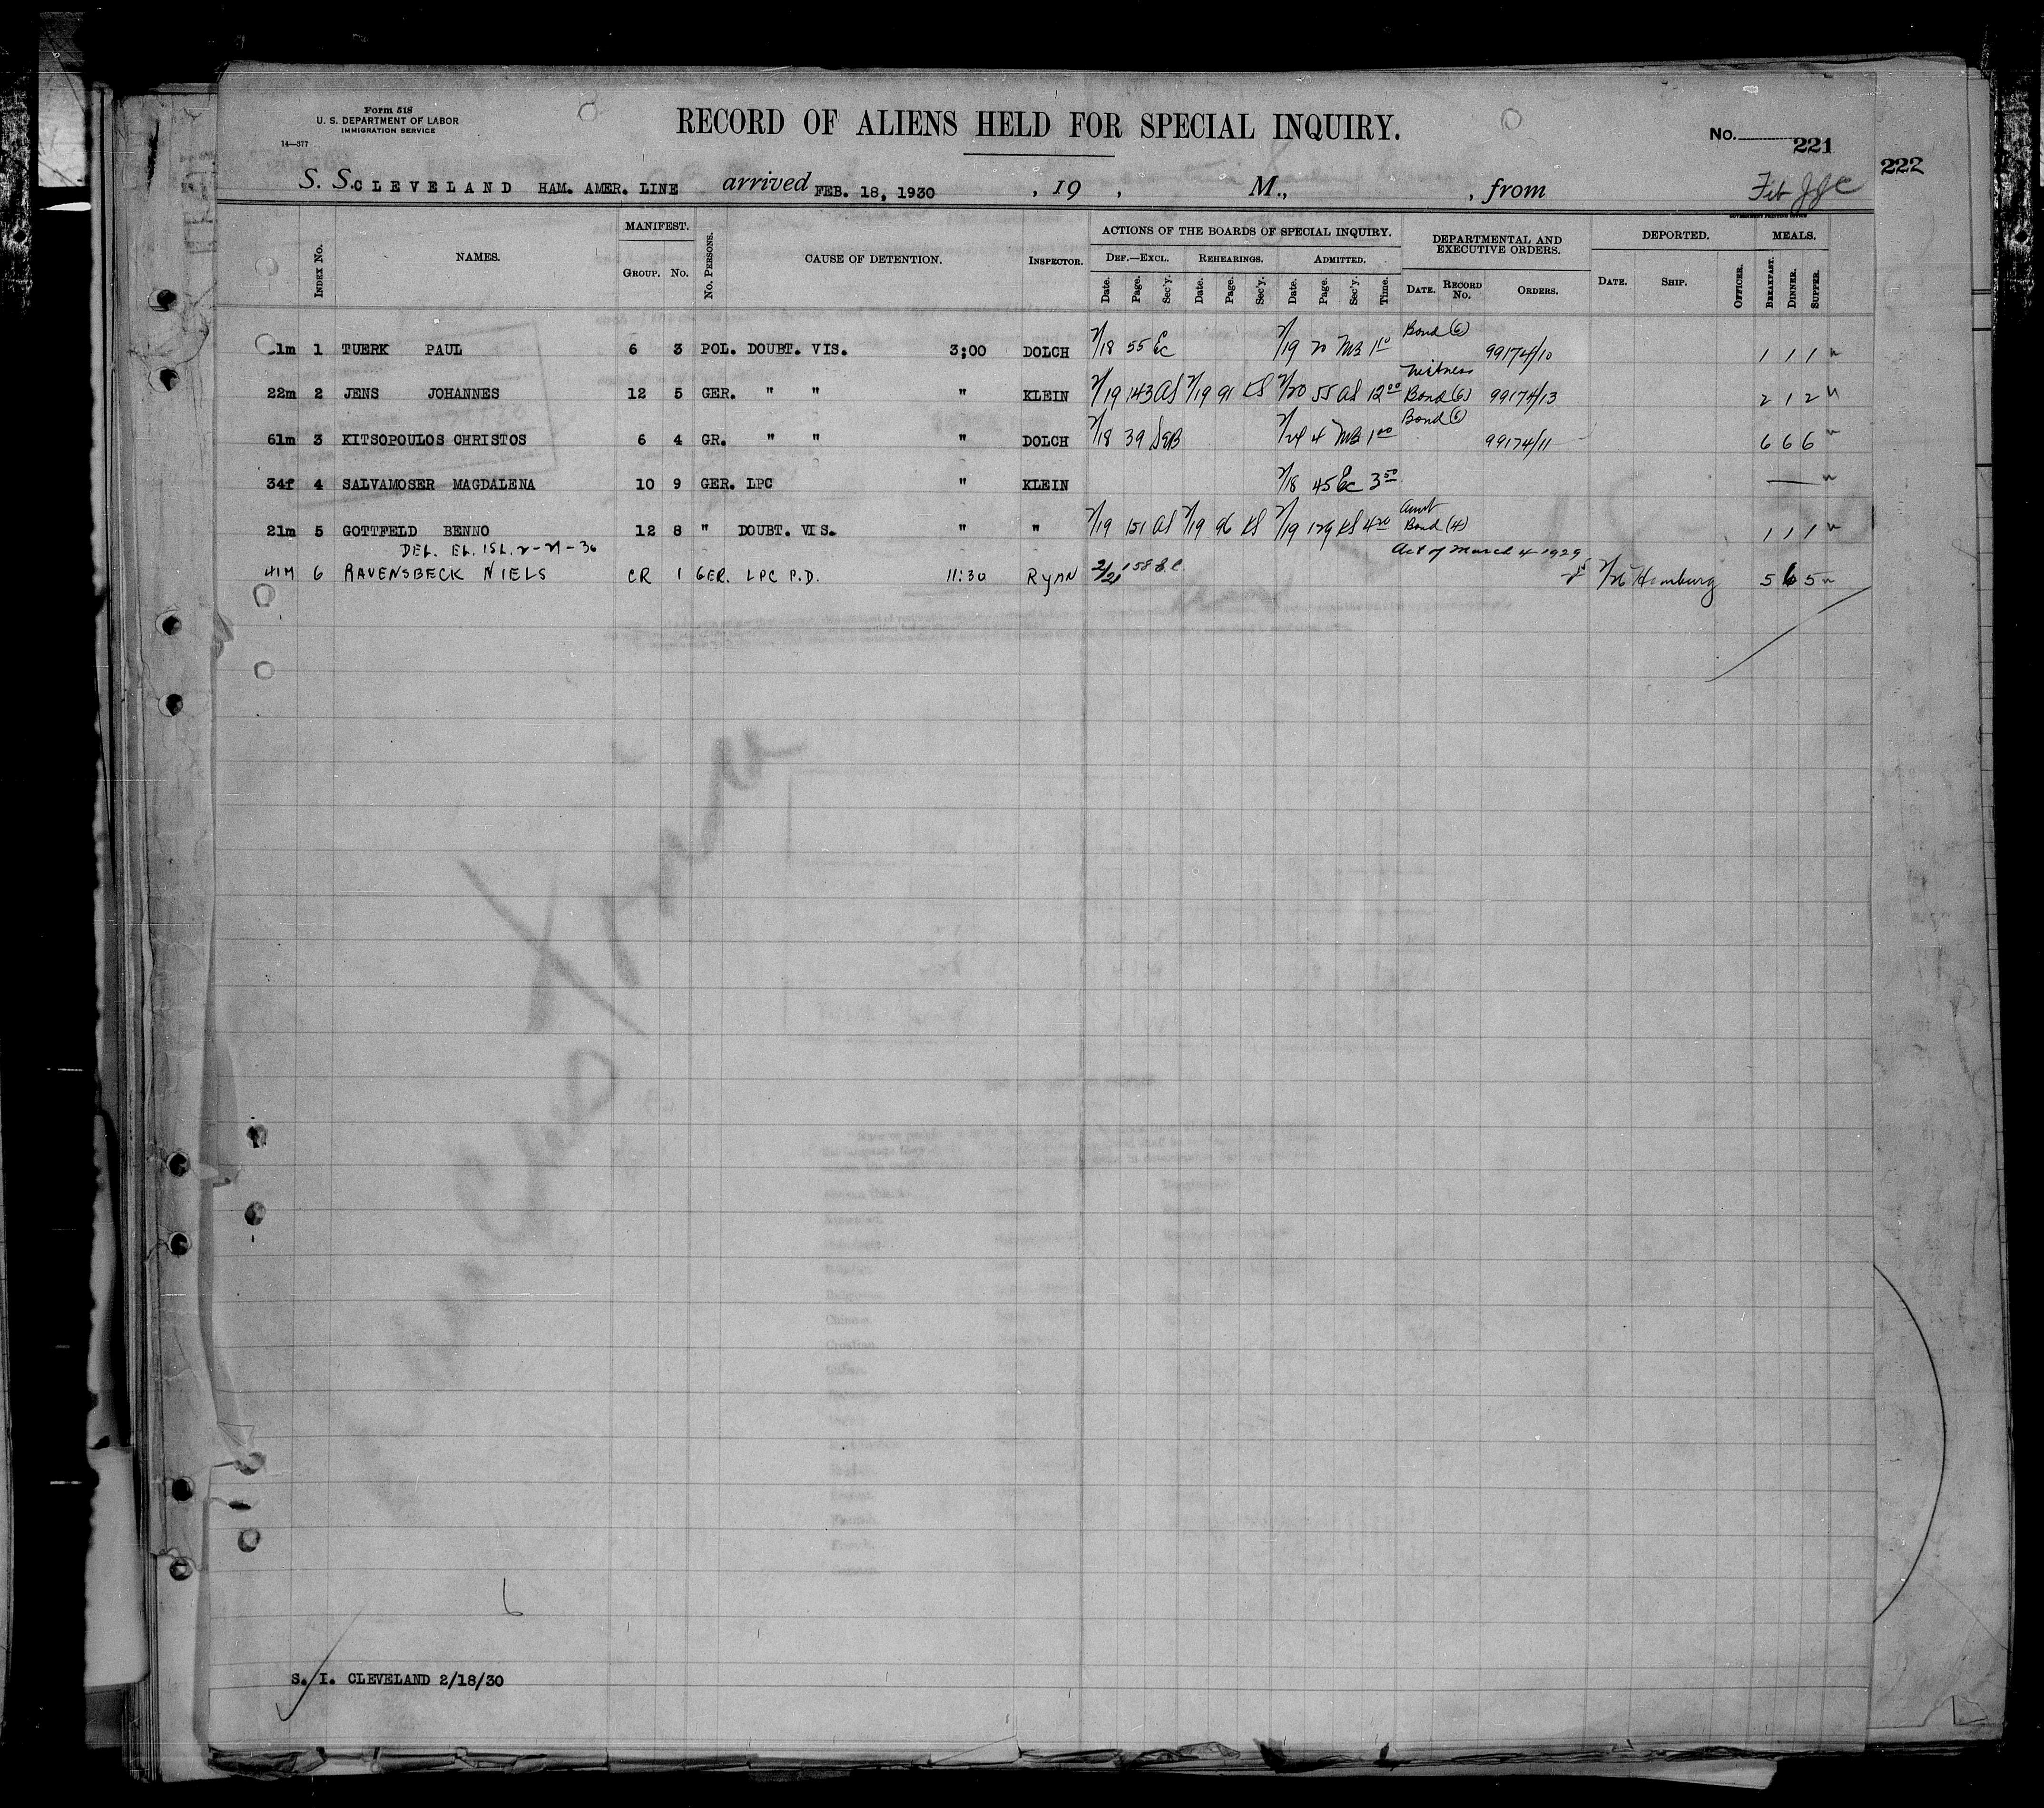 Form 518
U. S. DEPARTMENT OF LABOR
IMMIGRATION SERVICE
14—377
RECORD OF ALIENS HELD FOR SPECIAL INQUIRY.
No. 221
222
S. S. CLEVELAND HAM. AMER. LINE arrived FEB. 18, 1930 , 19 , M., , from
GOVERNMENT PRINTING OFFICE
INDEX No. NAMES. MANIFEST. No. PERSONS. CAUSE OF DETENTION. INSPECTOR. ACTIONS OF THE BOARDS OF SPECIAL INQUIRY. DEPARTMENTAL AND EXECUTIVE ORDERS. DEPORTED. MEALS.
GROUP. No. DEF.—EXCL. REHEARINGS. ADMITTED.
Date. Page. Sec'y. Date. Page. Sec'y. Date. Page. Sec'y. Time. DATE. RECORD No. ORDERS. DATE. SHIP. OFFICER. BREAKFAST. DINNER. SUPPER.
Bond (6)
1m 1 TUERK PAUL 6 3 POL. DOUBT. VIS. 3;00 DOLCH 2/18 55 Ec 2/19 20 MB 1 10 99174/10 1 1 1
Witness
22m 2 JENS JOHANNES 12 5 GER. " " " KLEIN 2/19 143 AS 2/19 91 KS 2/20 55 AS 12 00 Bond (6) 99174/13 2 1 2
Bond (6)
61m 3 KITSOPOULOS CHRISTOS 6 4 GR. " " " DOLCH 2/18 39 SEB 2/24 4 MB 1 00 99174/11 6 6 6
34f 4 SALVAMOSER MAGDALENA 10 9 GER. LPC " KLEIN 2/18 45 Ec 3 50 —
21m 5 GOTTFELD BENNO 12 8 " DOUBT. VIS. " " 2/19 151 AS 2/19 96 KS 2/19 129 KS 4 20 Bond (4) 1 1 1
DEL. EL. ISL. 2-21-30 Act of March 4 1929
41M 6 RAVENSBECK NIELS CR 1 GER. LPC P.D. 11:30 RYAN 2/21 158 2/26 Hamburg 5 6 5
6
S. I. CLEVELAND 2/18/30